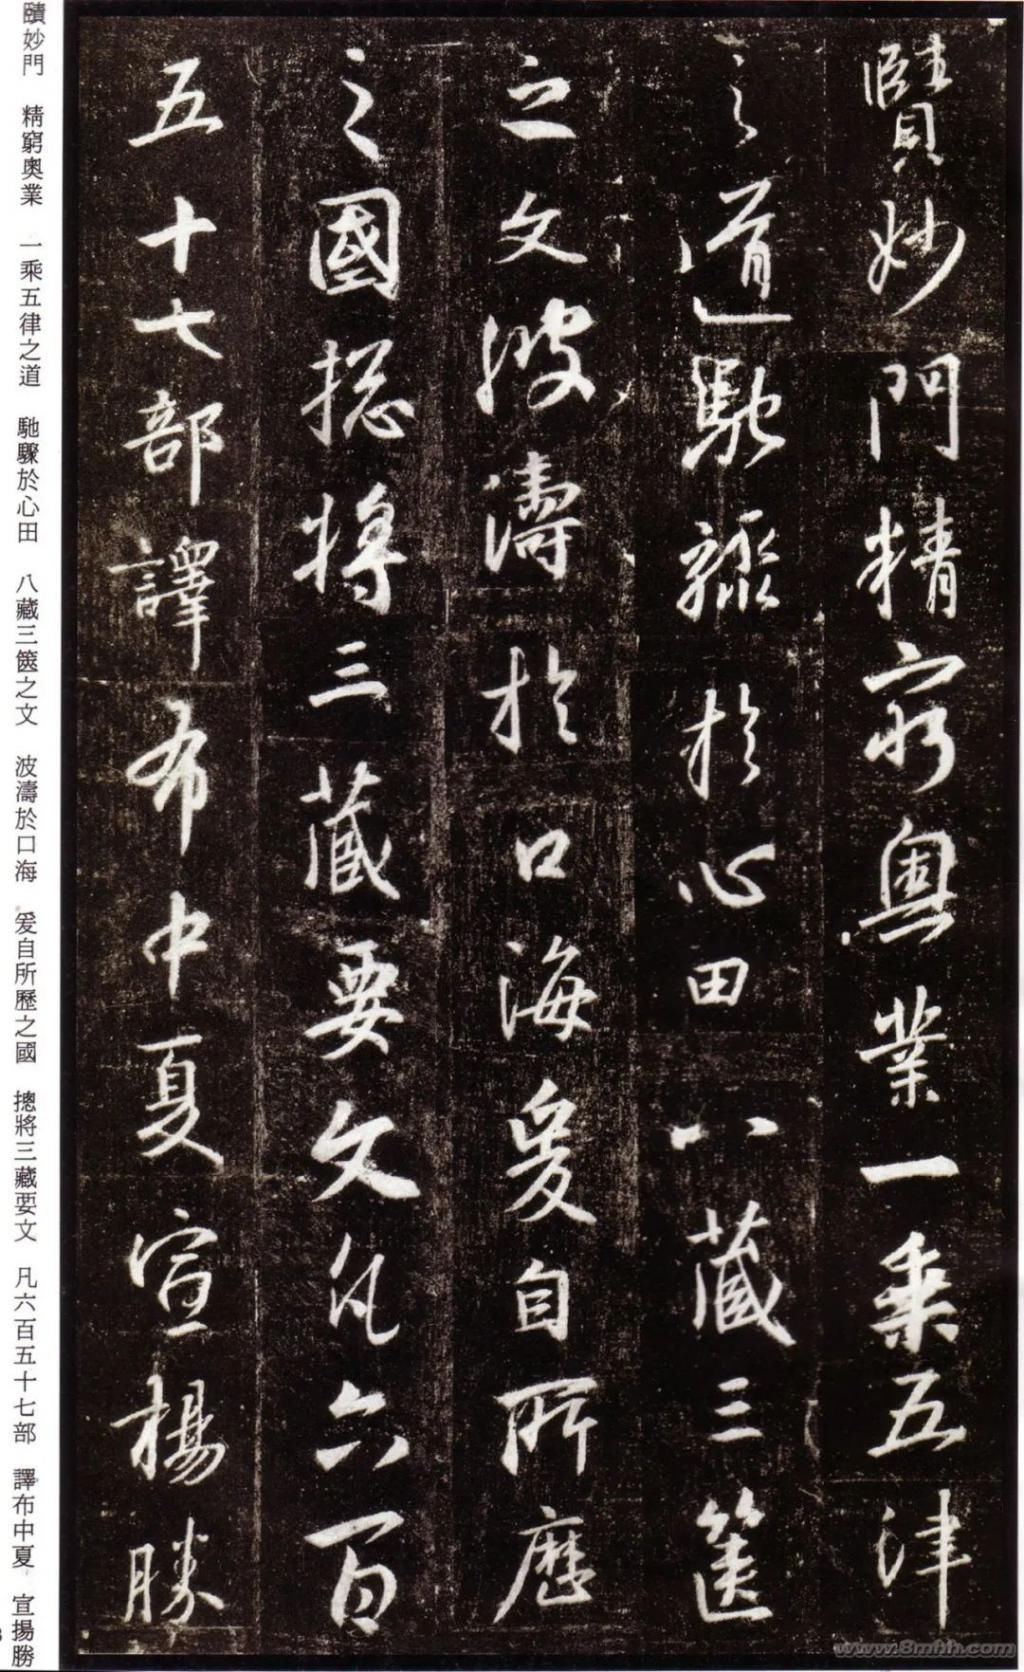 賾妙門精窮奧業一乘五律
之道馳驟於心田八藏三篋
之文波濤於口海爰自所歷
之國摠將三藏要文凡六百
五十七部譯布中夏宣揚勝
賾妙門 精窮奧業 一乘五律之道 馳驟於心田 八藏三篋之文 波濤於口海 爰自所歷之國 摠將三藏要文 凡六百五十七部 譯布中夏 宣揚勝
www.8mhh.com